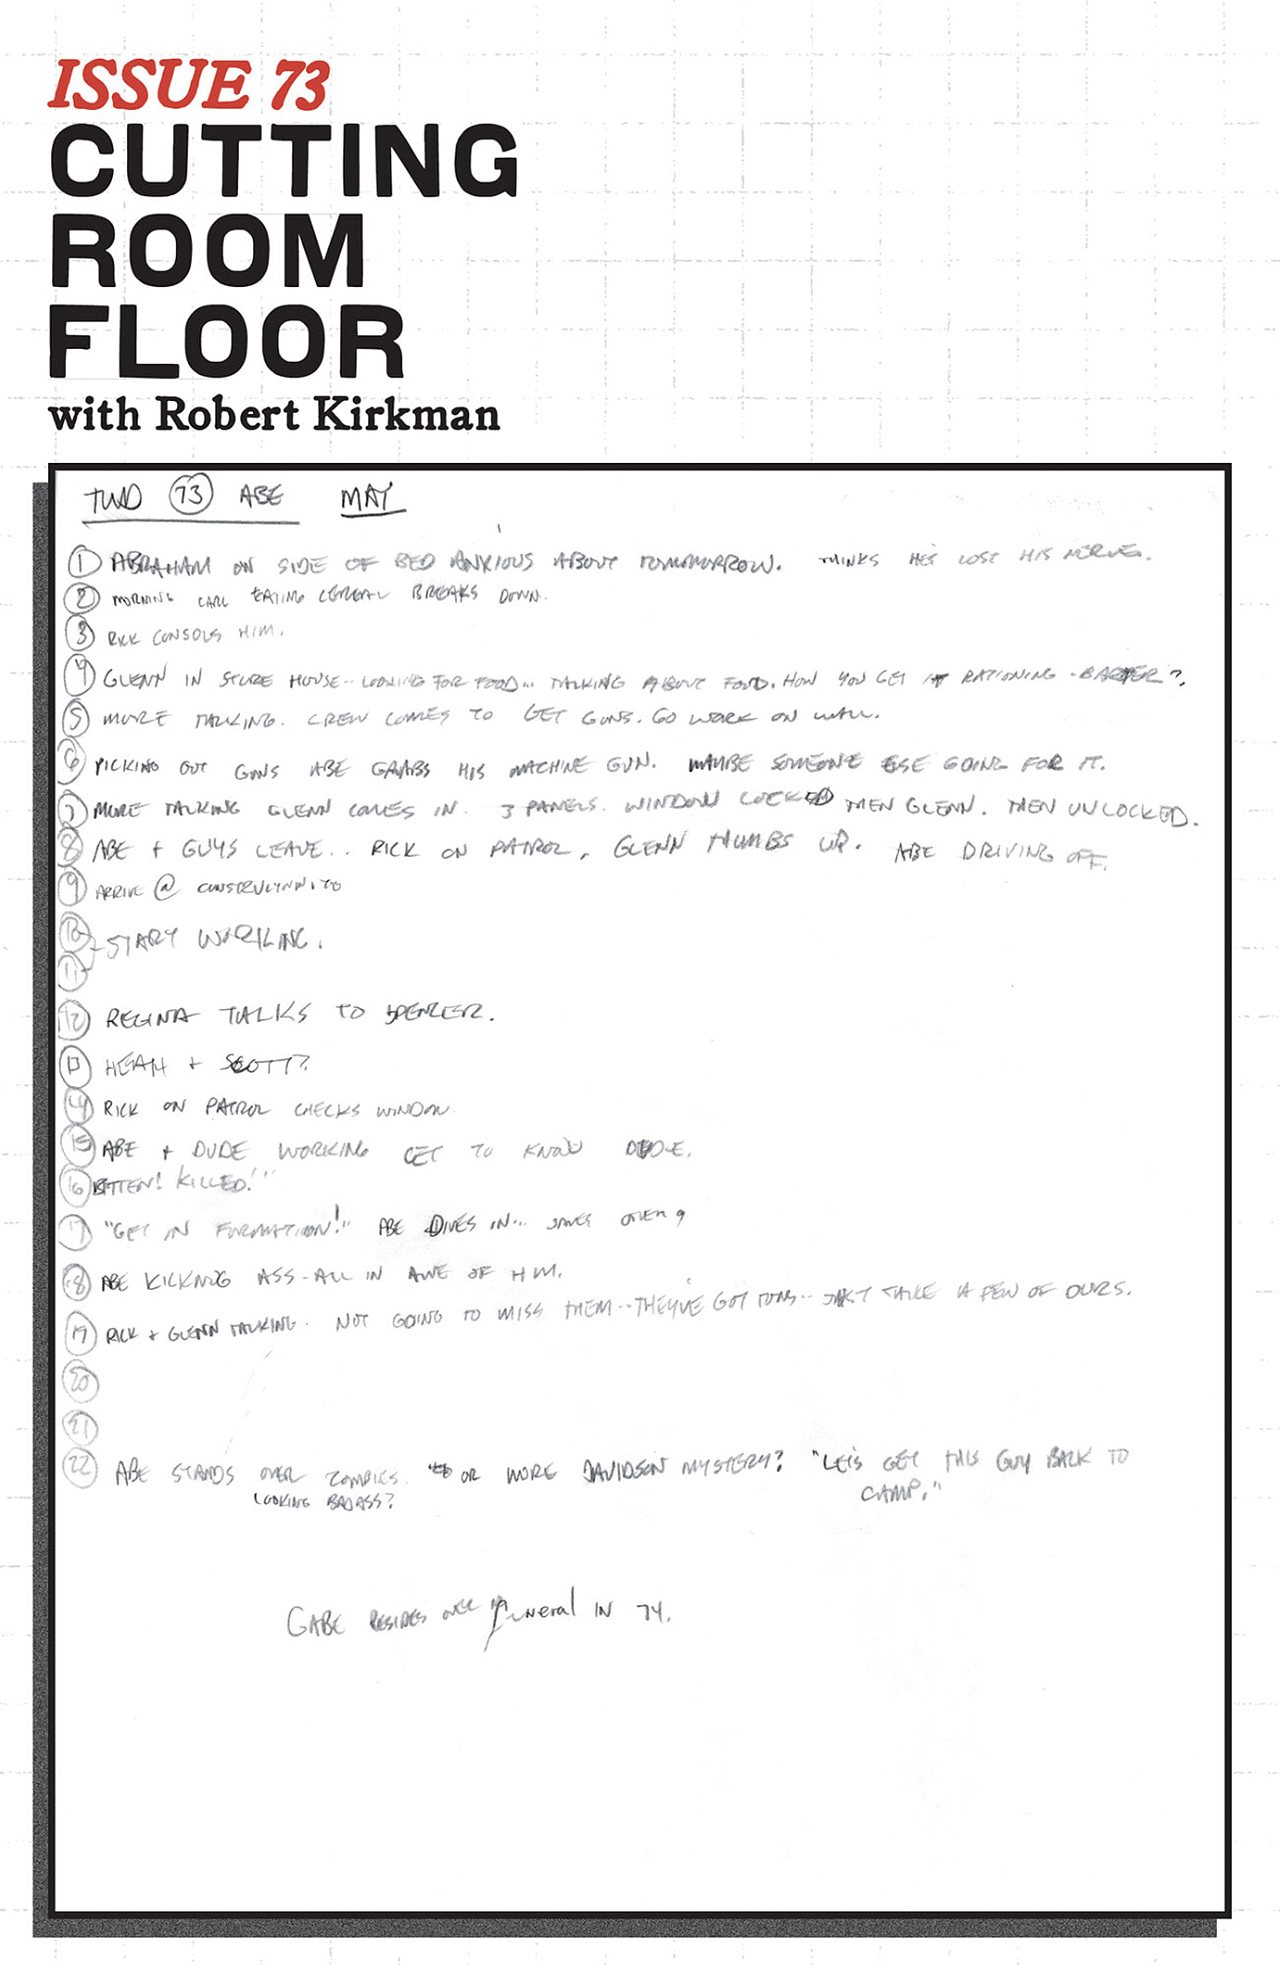 ISSUE 73
CUTTING
ROOM
FLOOR
with Robert Kirkman
TWD 73 ABE MAY
1 ABRAHAM ON SIDE OF BED ANXIOUS ABOUT TOMOMORROW. THINKS HE'S LOST HIS NERVES.
2 MORNING CARL EATING CEREAL BREAKS DOWN.
3 RICK CONSOLS HIM.
4 GLENN IN STORE HOUSE-- LOOKING FOR FOOD... TALKING ABOUT FOOD. HOW YOU GET IT RATIONING - BARTER?
5 MORE TALKING. CREW COMES TO GET GUNS. GO WORK ON WALL.
6 PICKING OUT GUNS ABE GRABS HIS MACHINE GUN. MAYBE SOMEONE ELSE GOING FOR IT.
7 MORE TALKING GLENN COMES IN. 3 PANELS. WINDOW LOCKED THEN GLENN. THEN UNLOCKED.
8 ABE + GUYS LEAVE.. RICK ON PATROL, GLENN THUMBS UP. ABE DRIVING OFF.
9 ARRIVE @
10 - START WORKING.
11
12 REGINA TALKS TO SPENCER.
13 HEATH + SCOTT?
14 RICK ON PATROL CHECKS WINDOW
15 ABE + DUDE WORKING GET TO KNOW DUDE.
16 BITTEN! KILLED!"
17 "GET IN FORMATION!" ABE DIVES IN... SAVES
18 ABE KICKING ASS - ALL IN AWE OF HIM.
19 RICK + GLENN TALKING. NOT GOING TO MISS THEM-- THEY'VE GOT TONS-- JUST TAKE A FEW OF OURS.
20
21
22 ABE STANDS OVER ZOMBIES. OR MORE DAVIDSON MYSTERY? "LET'S GET THIS GUY BACK TO
LOOKING BADASS? CAMP."
GABE RESIDES OVER funeral IN 74.